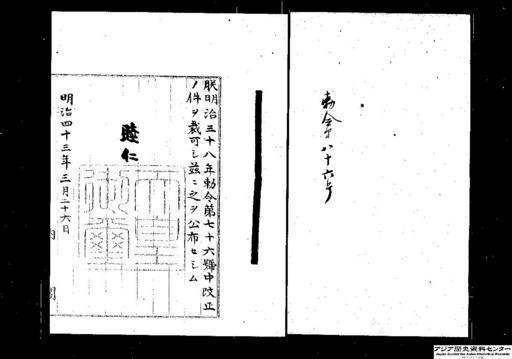 勅令第八十六号
朕明治三十八年勅令第七十六號中改正
ノ件ヲ裁可シ茲ニ之ヲ公布セシム
睦仁
天皇御璽
明治四十三年三月二十六日
内閣
アジア歴史資料センター
Japan Center for Asian Historical Records